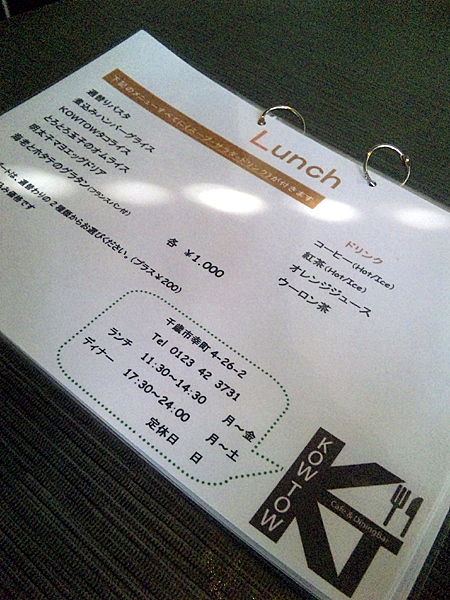 Lunch
下記のメニューすべてに(スープ・サラダ・ドリンク)が付きます
週替りパスタ
煮込みハンバーグライス
KOWTOWタコライス
とろとろ玉子のオムライス
明太子マヨエッグドリア
海老とホタテのグラタン(フランスパン付)
各 ¥1,000
ートは、週替わりの2種類からお選びください。(プラス¥200)
み価格です
ドリンク
コーヒー(Hot/Ice)
紅茶(Hot/Ice)
オレンジジュース
ウーロン茶
千歳市幸町4-26-2
Tel 0123 42 3731
ランチ 11:30~14:30 月~金
ディナー 17:30~24:00 月~土
定休日 日
KOWTOW
KT
Cafe & DiningBar